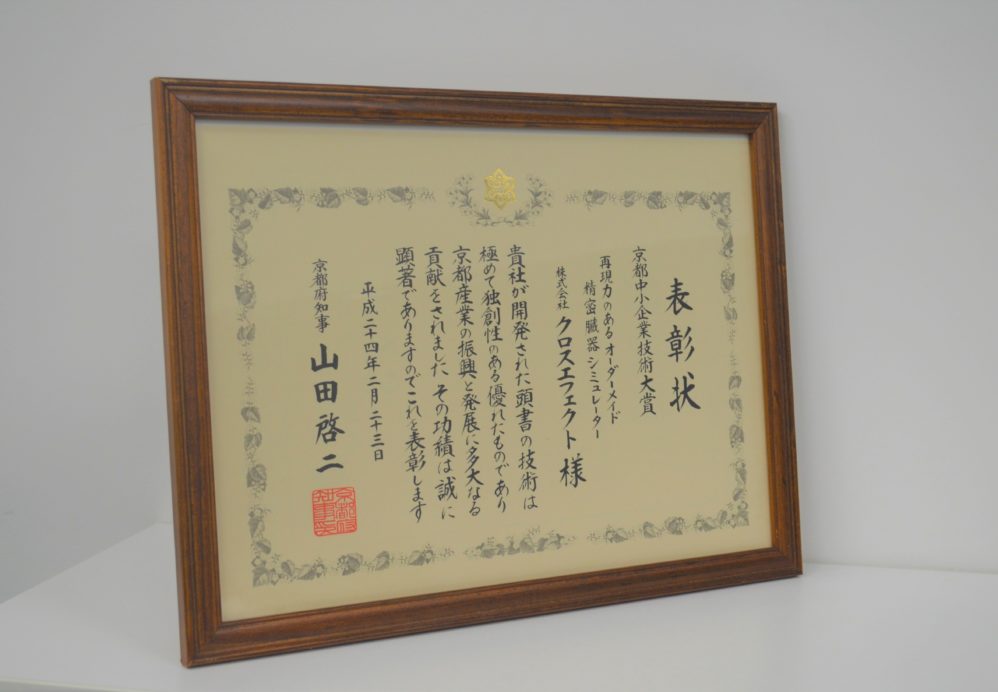 表彰状
京都中小企業技術大賞
再現力のあるオーダーメイド
精密臓器シミュレーター
株式会社 クロスエフェクト様
貴社が開発された頭書の技術は
極めて独創性のある優れたものであり
京都産業の振興と発展に多大なる
貢献をされました その功績は誠に
顕著でありますのでこれを表彰します
平成二十四年二月二十三日
京都府知事 山田啓二